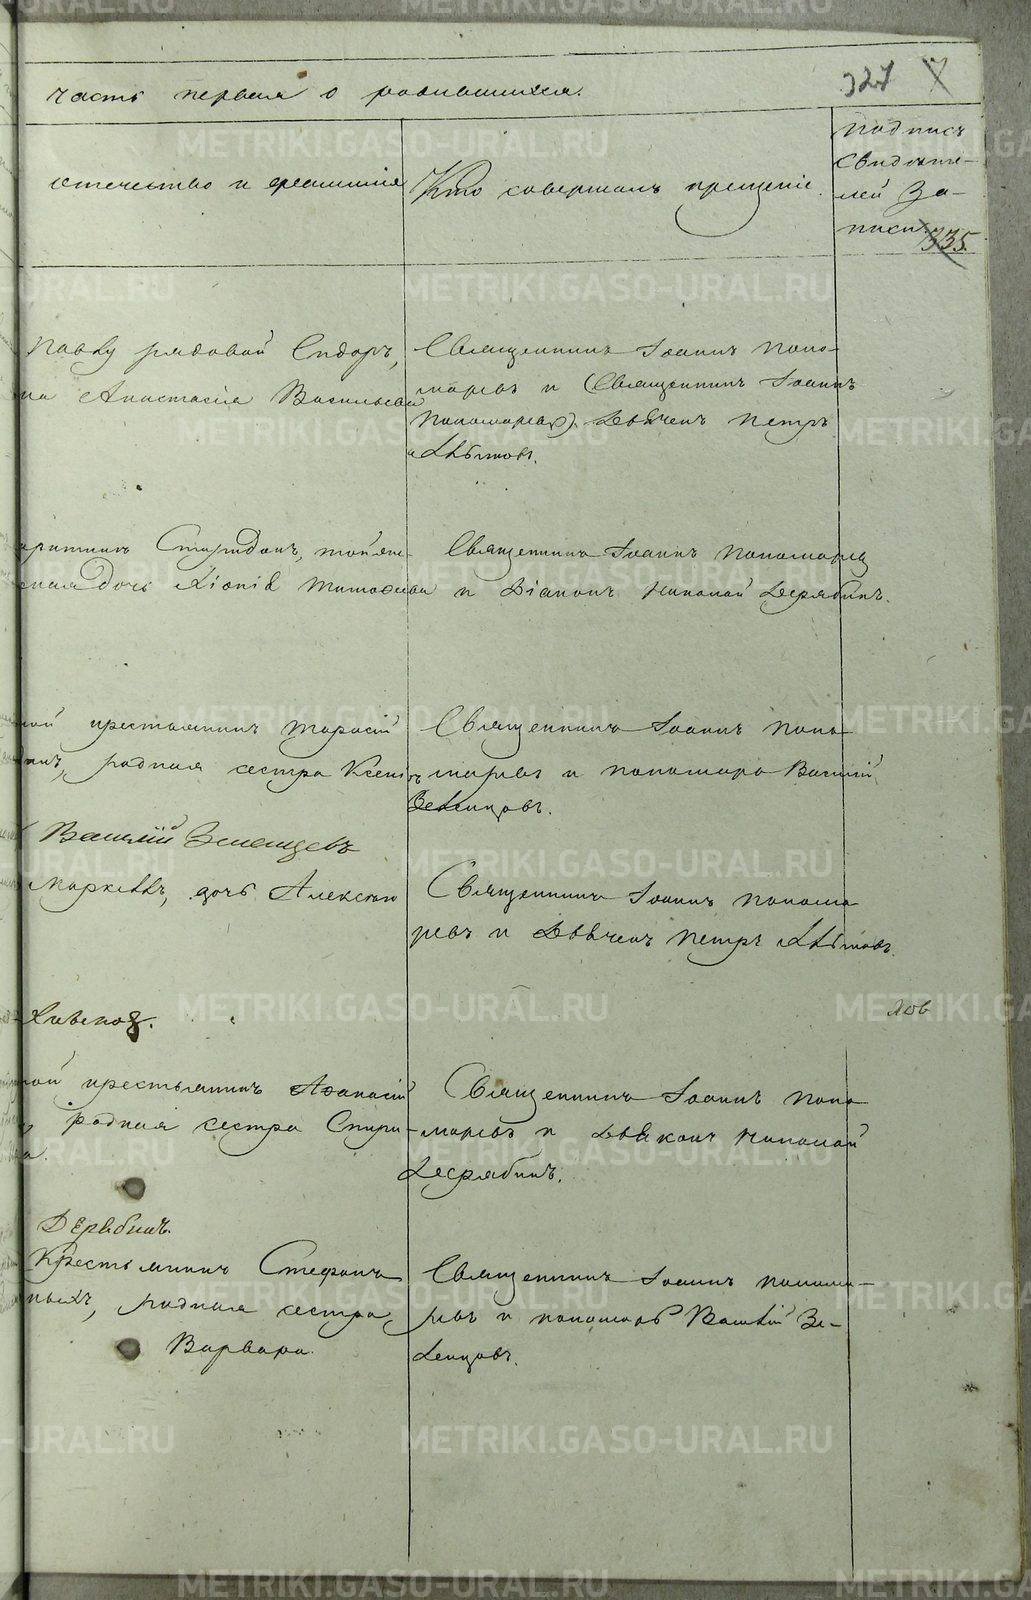 327
часть первая о родившихся.
отечество и фамилія
Кто совершалъ крещеніе.
подпись
свидѣте-
лей за-
писи.
335.
полку рядовой Сидоръ,
на Анастасія Васильева
Священникъ Іоаннъ Поно-
маревъ и (Священникъ Іоаннъ
Пономаревъ). Дьячекъ Петръ
Спиридонъ,
дочь Тимофеева
Священникъ Іоаннъ Пономаревъ
и Діаконъ Николай Дерябинъ.
ной крестьянинъ Тарасій
родная сестра Ксенія
Священникъ Іоаннъ Поно
маревъ и пономарь Василій
Зеленцовъ.
Василій Зеленцевъ
дочь Алексан
Священникъ Іоаннъ Понома
ревъ и Дьячекъ Петръ
ной крестьянинъ Афанасій
родная сестра Спири-
Священникъ Іоаннъ Поно
маревъ и Дьяконъ Николай
Дерябинъ.
Дерябинъ.
Крестьянинъ Стефанъ
ныхъ, родная сестра
Варвара.
Священникъ Іоаннъ Понома-
ревъ и пономарь Василій Зе-
ленцовъ.
METRIKI.GASO-URAL.RU